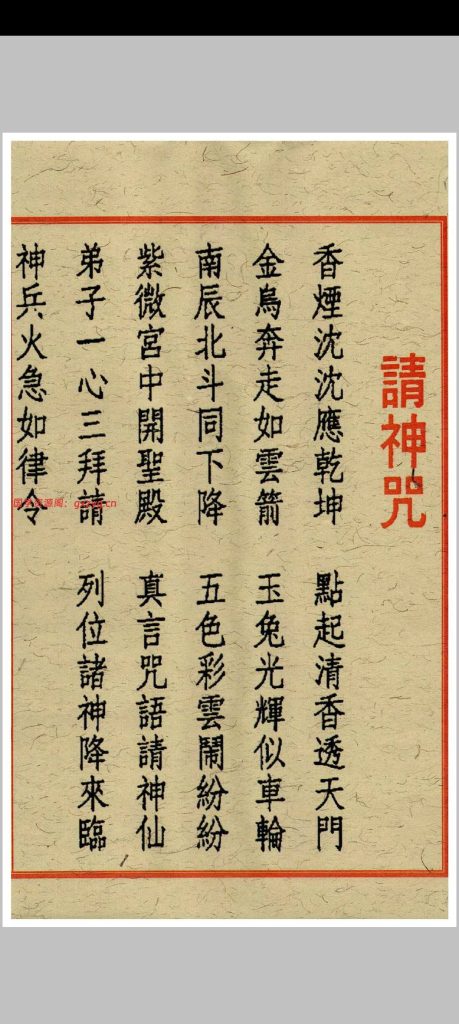 請神咒
香煙沈沈應乾坤 點起清香透天門
金烏奔走如雲箭 玉兔光輝似車輪
南辰北斗同下降 五色彩雲鬧紛紛
紫微宮中開聖殿 真言咒語請神仙
弟子一心三拜請 列位諸神降來臨
神兵火急如律令